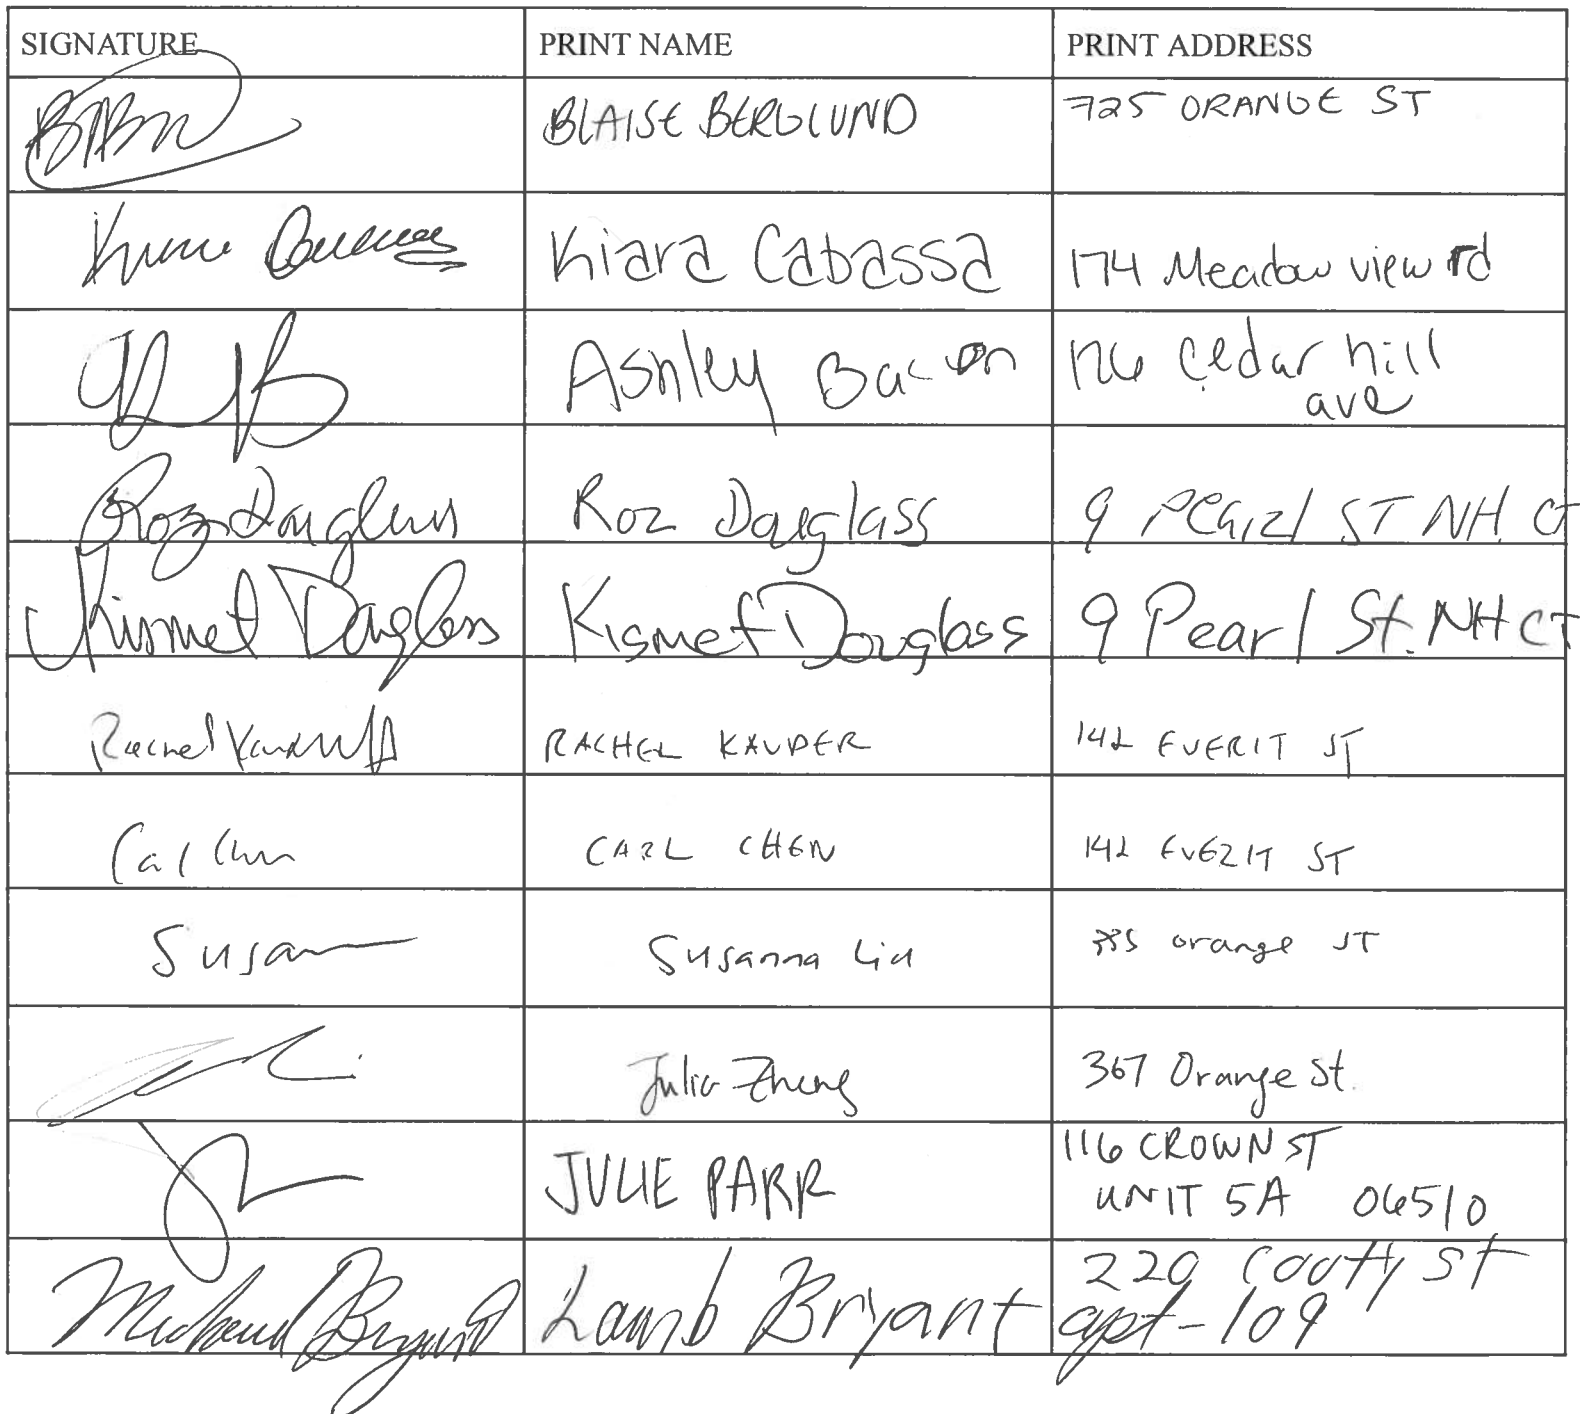 SIGNATURE PRINT NAME PRINT ADDRESS
BLAISE BERGLUND 725 ORANGE ST
Kiara Cabassa 174 Meadow view rd
Ashley Bacon 126 Cedar hill
ave
Roz Douglass Roz Douglass 9 Pearl ST NH. CT
Kismet Douglass Kismet Douglass 9 Pearl St. NH CT
Rachel RACHEL KAUDER 142 EVERIT ST
Carl Chen CARL CHEN 142 EVERIT ST
Susan Susanna Liu orange ST
Julia Zheng 367 Orange St.
JULIE PARR 116 CROWN ST
UNIT 5A 06510
Michael Bryant Bryant st
apt-109